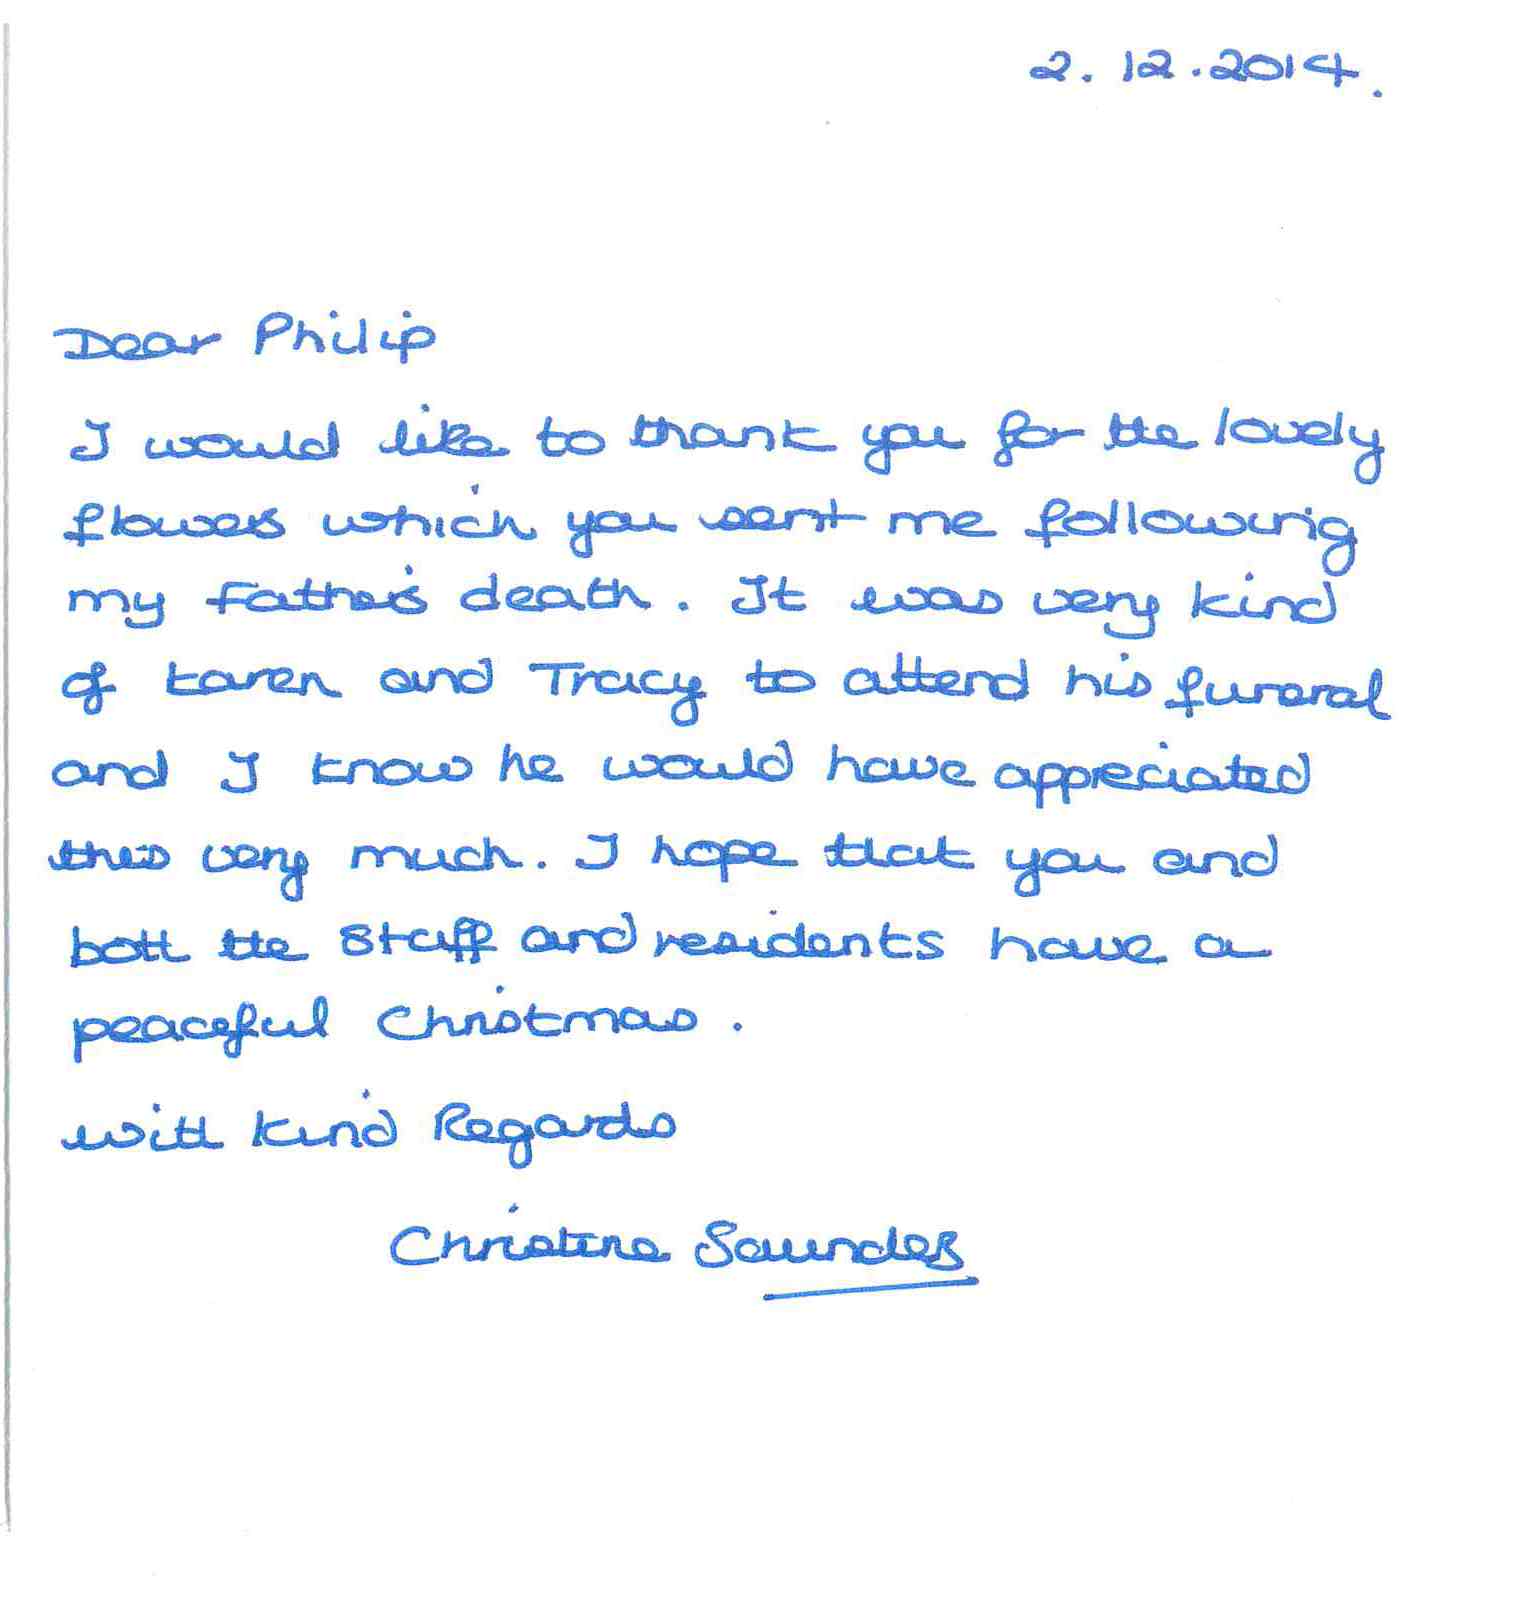 2.12.2014.
Dear Philip
I would like to thank you for the lovely
flowers which you sent me following
my Father's death. It was very kind
of Karen and Tracy to attend his funeral
and I know he would have appreciated
this very much. I hope that you and
both the staff and residents have a
peaceful Christmas.
With Kind Regards
Christine Saunders